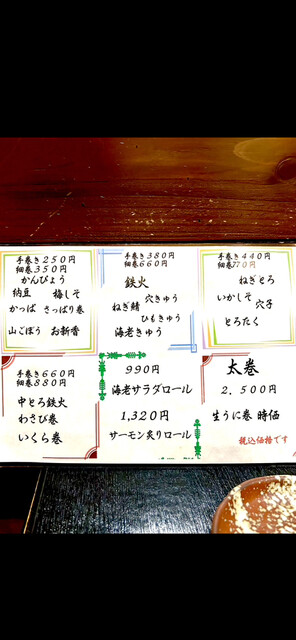 手巻き250円
細巻350円
かんぴょう
納豆 梅しそ
かっぱ さっぱり巻
山ごぼう お新香
手巻き380円
細巻660円
鉄火
穴きゅう
ねぎ鯖
ひもきゅう
海老きゅう
手巻き440円
細巻770円
ねぎとろ
いかしそ 穴子
とろたく
手巻き660円
細巻880円
中とろ鉄火
わさび巻
いくら巻
990円
海老サラダロール
1,320円
サーモン炙りロール
太巻
2.500円
生うに巻 時価
税込価格です